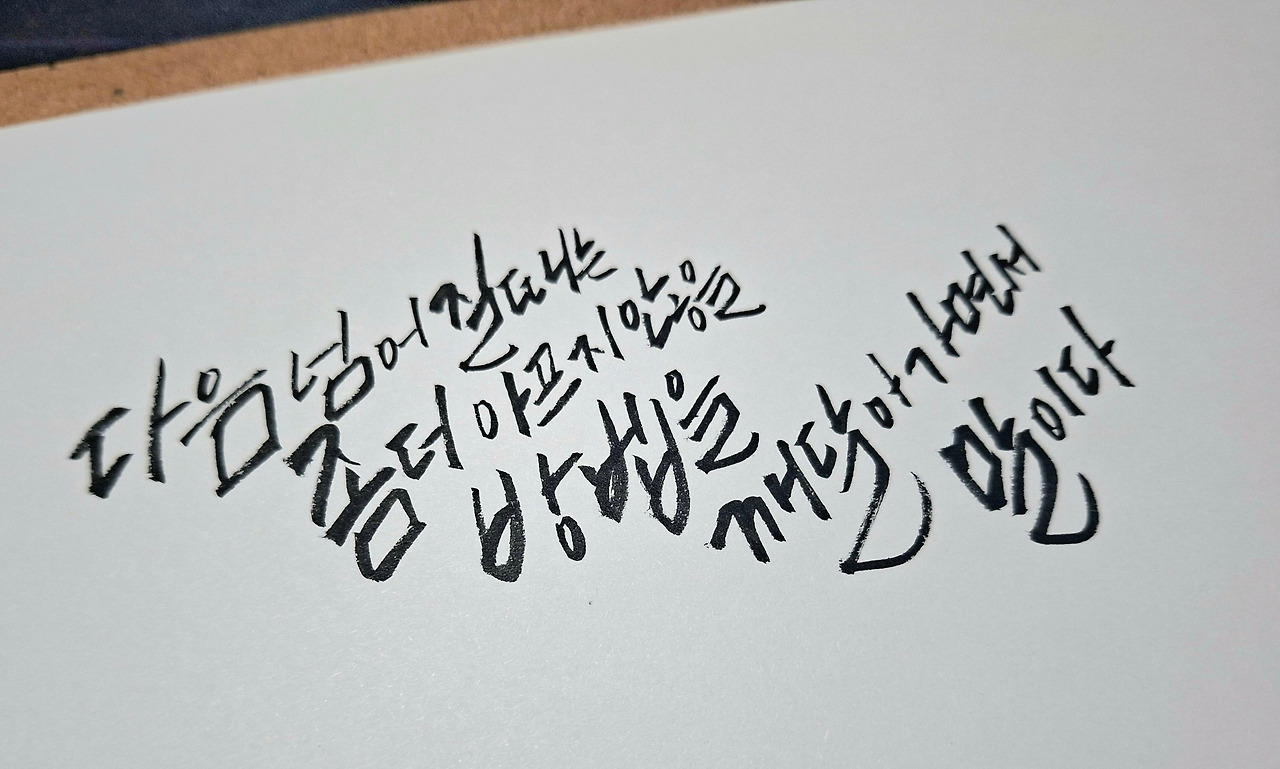 다음 넘어질 때는
좀 더 아프지 않을
방법을
깨달아가면서
말이다